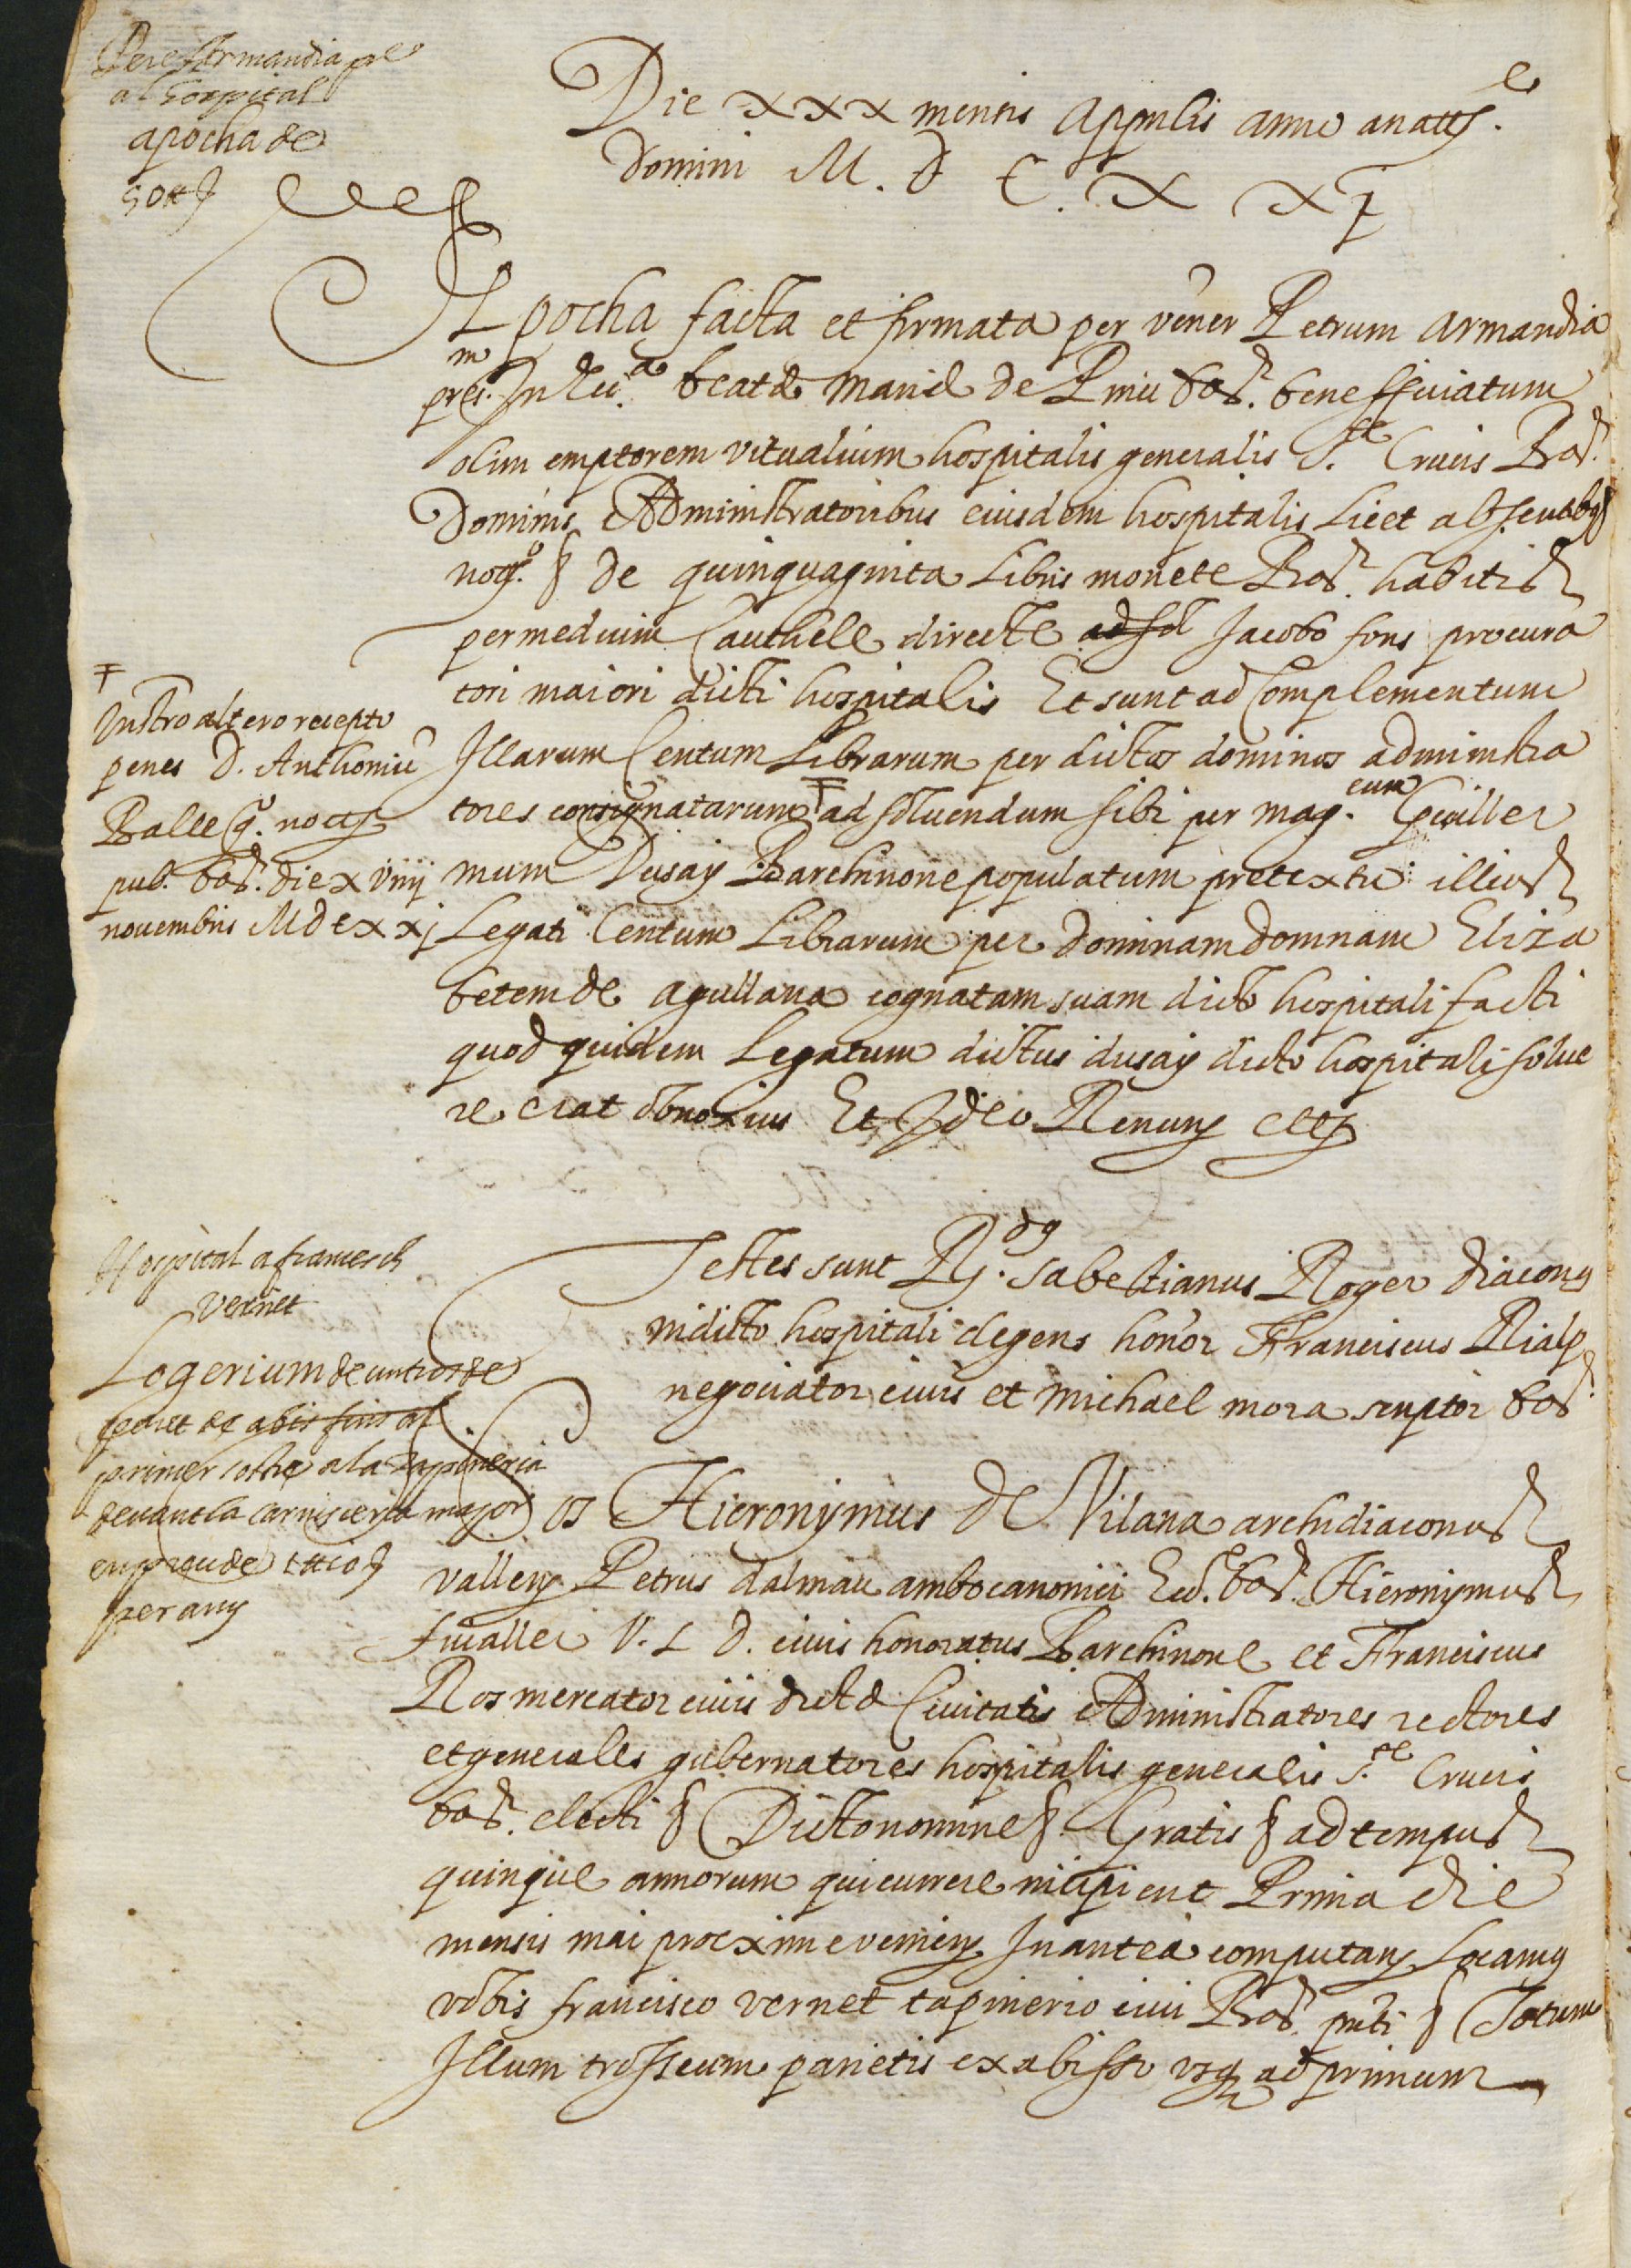 Pere Armandia pre
al hospital
apocha de
50 ₶
Die xxx mensis Apprilis anno a natte.
Domini M. D C. X Xj
Apocha facta et firmata per vener Petrum Armandia
prebm. In Ecca. beatæ Mariæ de Pinu bar. benefficiatum
olim emptorem vitualium hospitalis generalis S.te Crucis Bar.
Dominis Administratoribus eiusdem hospitalis Licet absentibus
noto. § de quinquaginta Libris monete Bar. habitis
per medium Cauthele directe ad sol Jacobo fons procura
tori maiori dicti hospitalis Et sunt ad Complementum
Illarum Centum Librarum per dictos dominos administra
tores consignatarum ‡ ad soluendum sibi per mag.cum Guiller
mum Dusay Barchinone populatum pretextu illius
Legati Centum Librarum per Dominam domnam Eliza
betem de Agullana cognatam suam dicto hospitali facti
quod quidem Legatum dictus dusay dicto hospitali solue
re erat obnoxius Et Ideo Renuns cett
‡
Instro altero recepto
penes D. Anthoniu
Balle q. nott
pub. bar. die x viiij
nouembris M d c x x j
Testes sunt Rdus. Sabestianus Roger diaconus
in dicto hospitali degens honor Franciscus Rialp
negociator ciuis et Michael mora scriptor bar
Hospital a francesch
Vernet
Logerium de un tros de
paret de abis fins al
primer sostre a la Tapineria
deuant la Carniseria major
en preu de 1 ₶ 10
per any
Nos Hieronymus de Vilana archidiaconus
vallens Petrus dalmau ambo canonici Ecc. bar. Hieronymus
fiualler V. J. D. ciuis honoratus Barchinone et Franciscus
Ros mercator ciuis dictæ Ciuitatis Administratores rectores
et generales gubernatores hospitalis generalis S.te Crucis
bar. electi § Dicto nomine § Gratis § ad tempus
quinque annorum qui currere incipient Prima die
mensis mai proxime veniens In antea computans Locamus
vobis francisco vernet tapinerio ciui Bar. pnti § Totum
Illum trosseum parietis ex abisso vsq ad primum